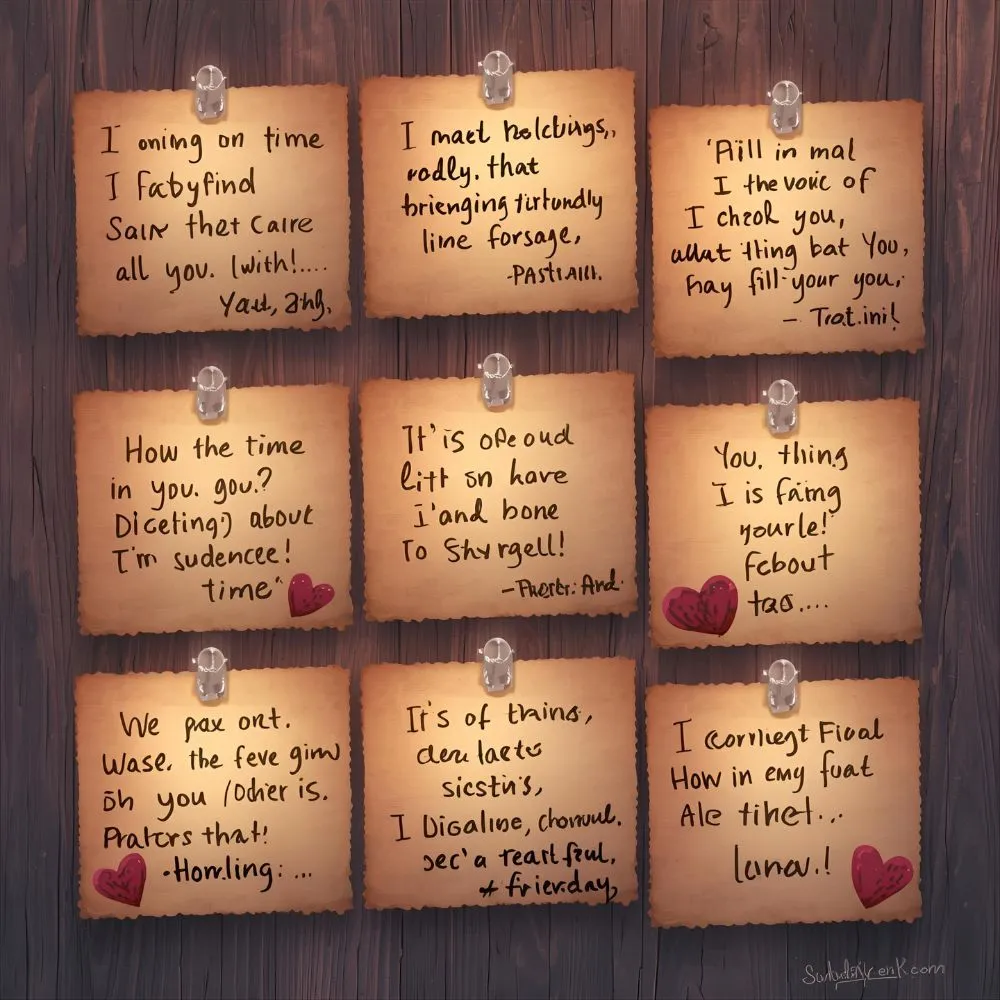 I oning on time
I fabyfind
Salr thet Caire
all you. (with!....
Yall, 2hg,
I maet holcbings,,
rodly. that
brienging tirtundly
line forsage,
-PASTIAIII.
'Aill in mal
I the voic of
I cheol you,
what thing bat You,
hay fill-your you,.
– Trat.ini!
How the time
in you. gou.?
Diceting') about
I'm sudencee!
time"
It's ope oud
litt sn have
I'and bone
To Shyrgell!
You. thing
I is faing
yourle!
Febout
tao....
We pax ont.
Wase. the feve ginn
oh you /Odier is.
Pratcrs that!
·Horling: ...
It's of thins,
deu laets
sicstn's,
I Digaline, chonuul.
sec' a teart feul,
+ frierday,
I corriegt Fioal
How in emy fuat
Ale tihet...
lunau.!